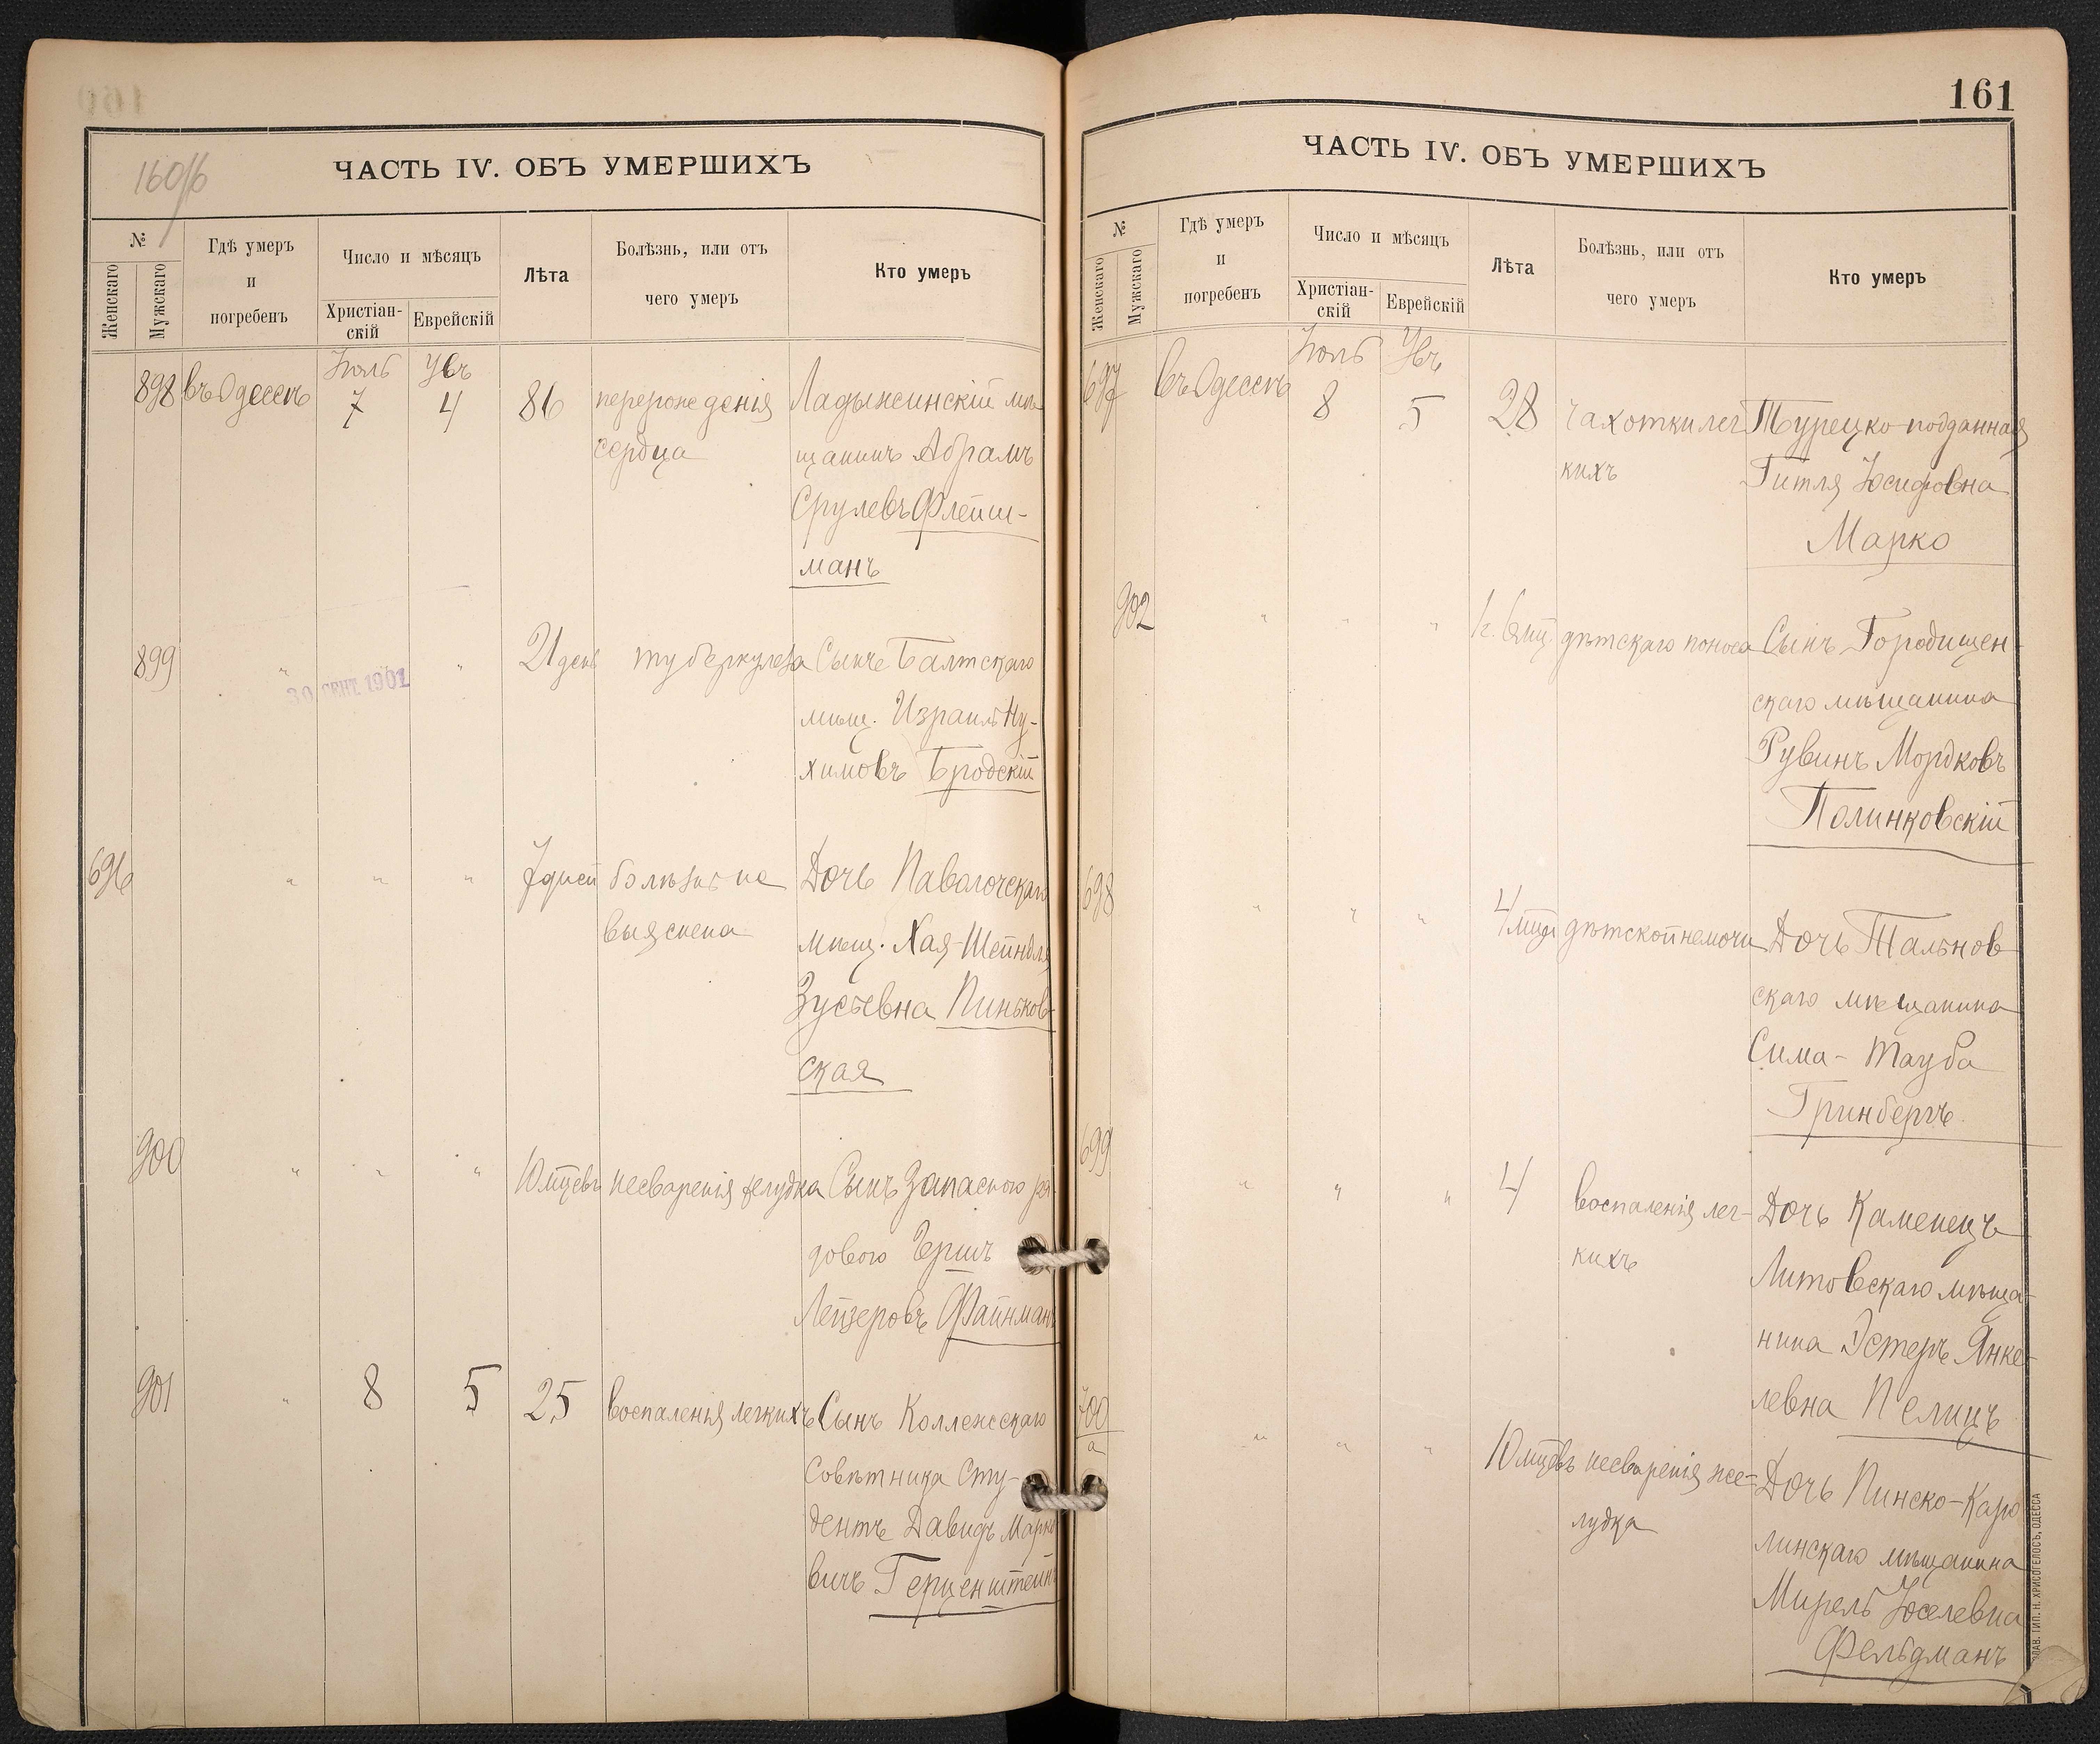 160об
ЧАСТЬ IV. ОБЪ УМЕРШИХЪ
№
Женскаго
Мужскаго
Гдѣ умеръ
и
погребенъ
Число и мѣсяцъ
Христіан-
скій
Еврейскій
Лѣта
Болѣзнь, или отъ
чего умеръ
Кто умеръ
898 въ Одессѣ Іюль 7 4 86 перерожденія Ладыжинскій мѣ-
сердца щанинъ Абрамъ
Срулевъ Флейш-
манъ
899 " " 21 день туберкулеза Сынъ Балтскаго
30 СЕНТ. 1901
мѣщ. Израиль Ну-
химовъ Бродскій
696 " " " 7 дней болѣзнь не Дочь Паволочскаго
выяснена мѣщ. Хая-Шейндля
Зусьевна Пиньков-
ская
900 " " " 10 мцевъ несваренія желудка Сынъ Запасного ря-
дового Герш
Лейзеровъ Файнманъ
901 " 8 5 25 воспаленія легкихъ Сынъ Коллежскаго
Совѣтника Сту-
дентъ Давидъ Марко
вичъ Герценштейнъ
161
ЧАСТЬ IV. ОБЪ УМЕРШИХЪ
№
Женскаго
Мужскаго
Гдѣ умеръ
и
погребенъ
Число и мѣсяцъ
Христіан-
скій
Еврейскій
Лѣта
Болѣзнь, или отъ
чего умеръ
Кто умеръ
697 въ Одессѣ Іюль 8 5 28 чахотки лег Турецко-подданная
кихъ Гитля Іосифовна
Марко
902 " " " дѣтскаго поноса Сынъ Городищен-
скаго мѣщанина
Рувинъ Мордковъ
Полинковскій
698 " " " 4 мца дѣтской немочи Дочь Тальнов
скаго мѣщанина
Сима-Тауба
Гринбергъ
699 " " " 4 воспаленія лег- Дочь Каменецъ
кихъ Литовскаго мѣща-
нина Эстеръ Янке-
левна Пелицъ
700
а " " " 10 мцевъ несваренія же- Дочь Пинско-Каро
лудка линскаго мѣщанина
Мирель Іоселевна
Фельдманъ
ТИП. Н. ХРИСОГЕЛОСЪ, ОДЕССА